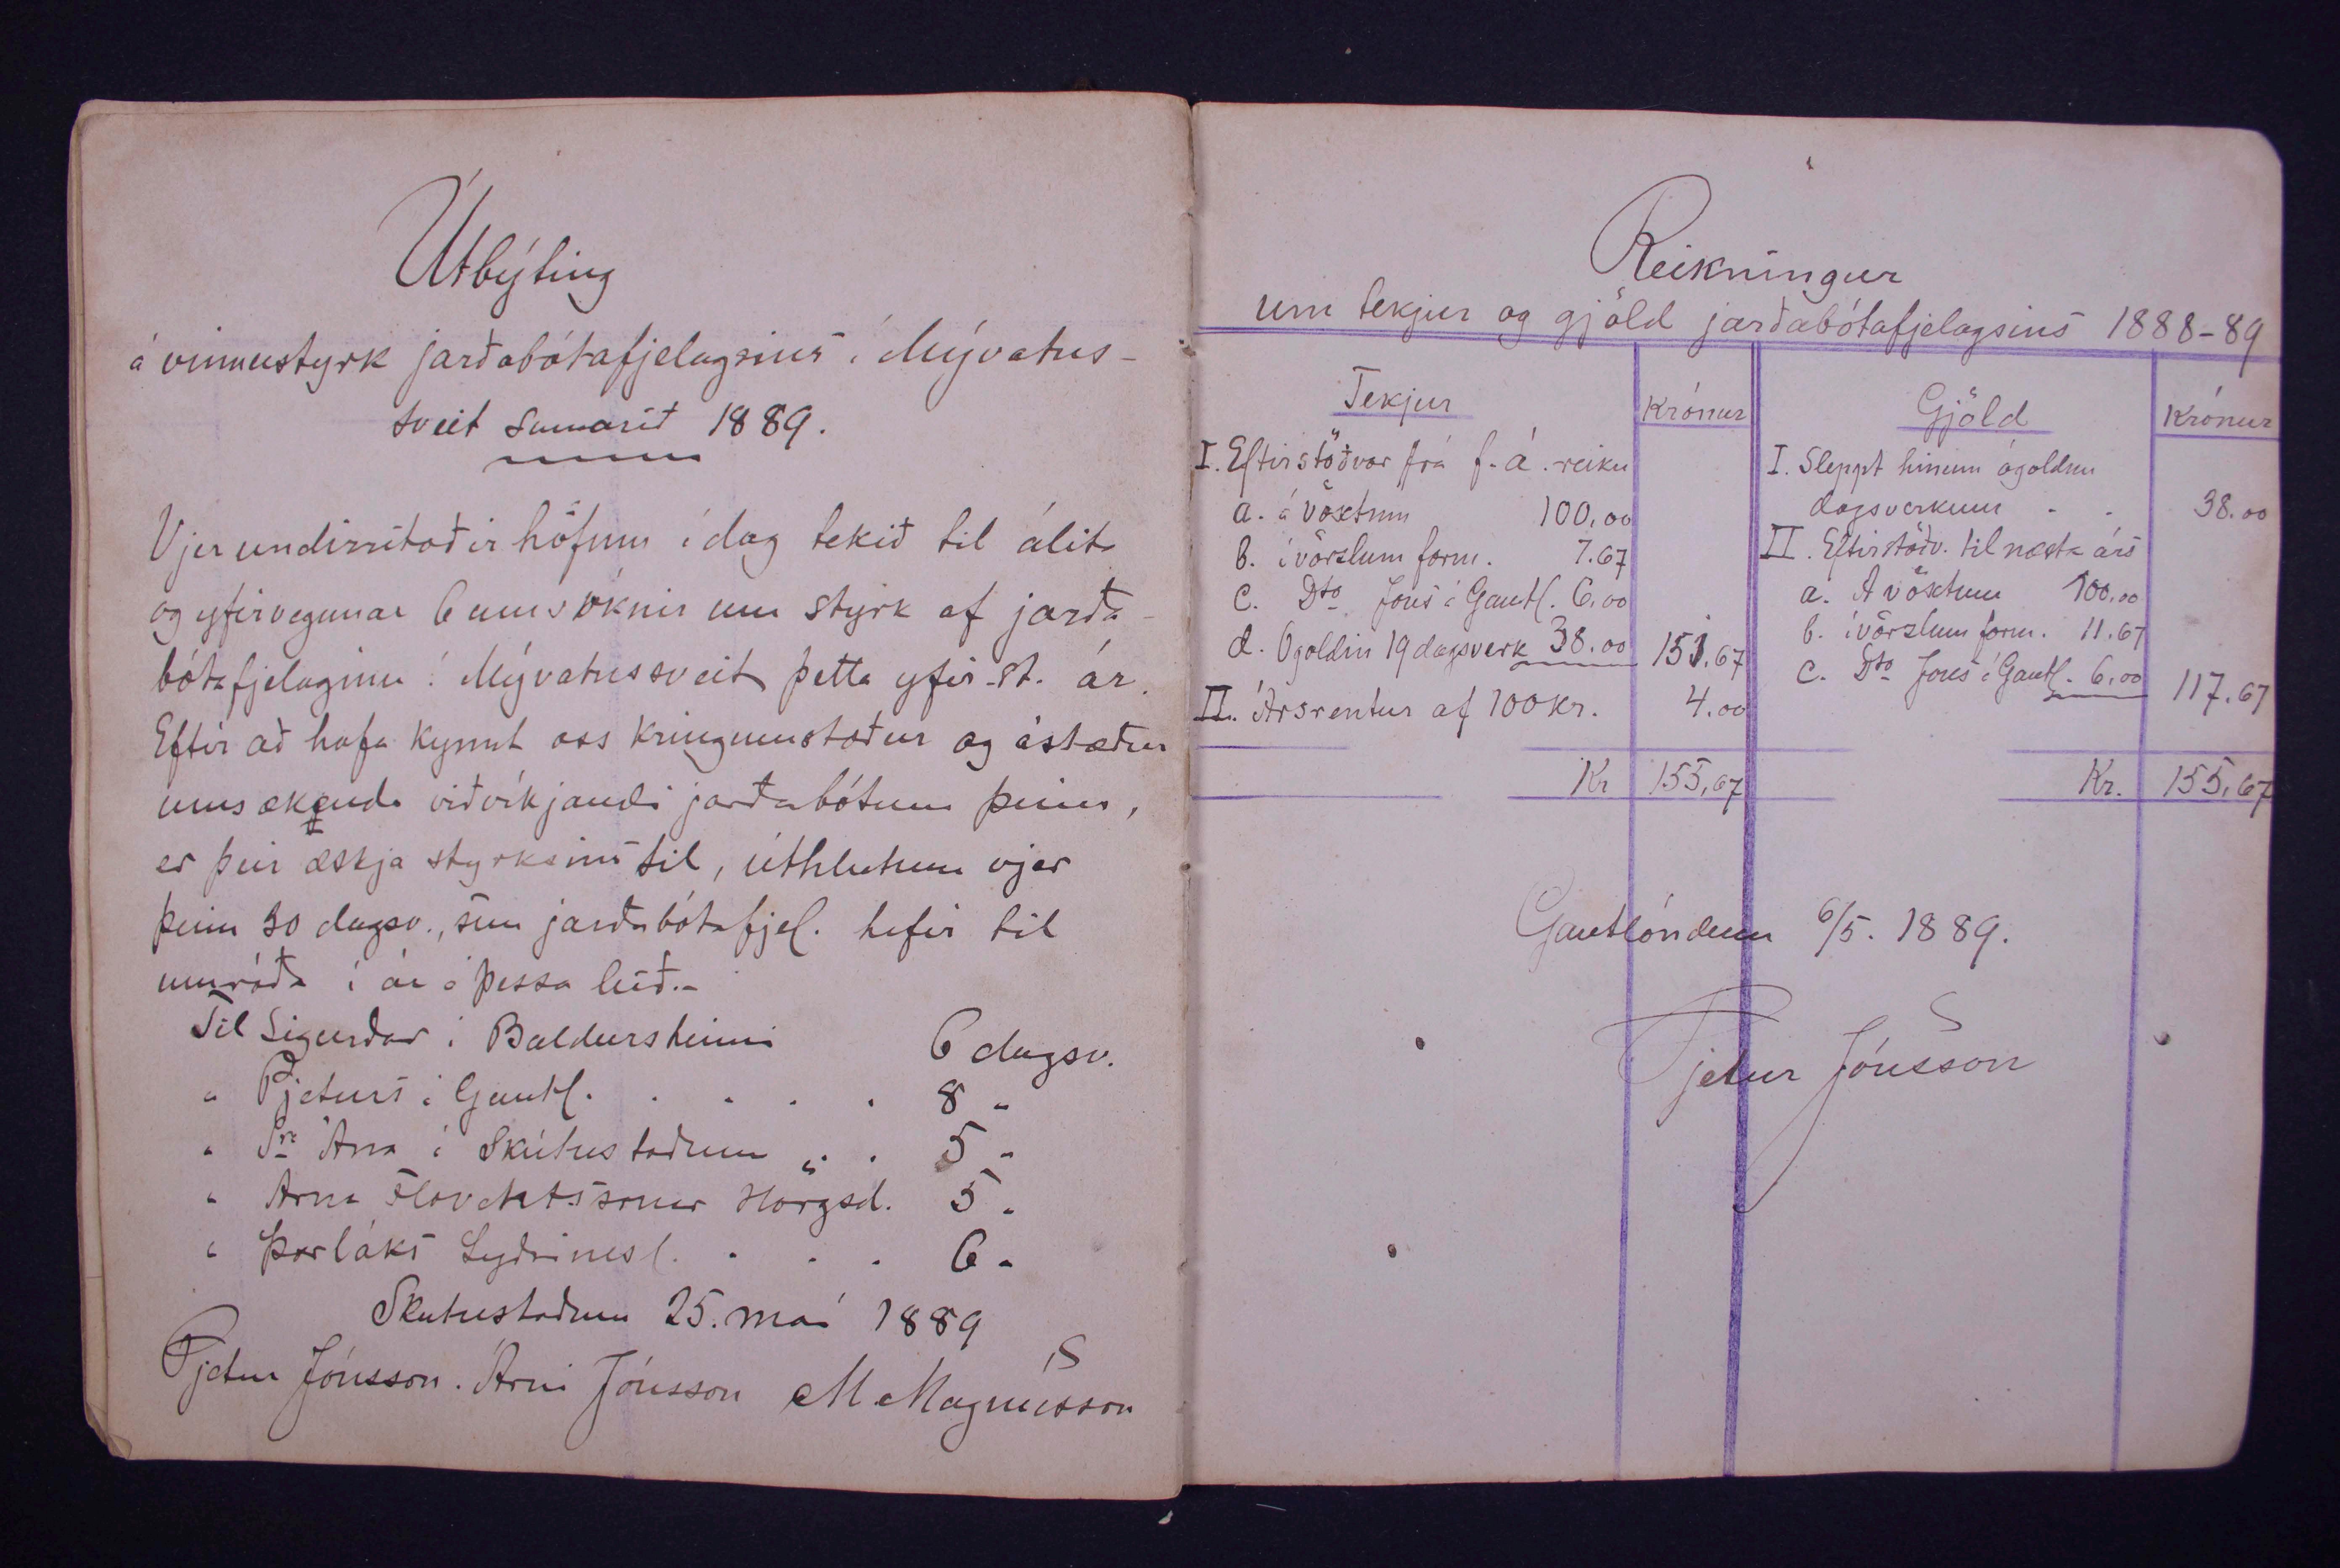 Útbýting
á vinnustyrk jarðabótafjelagsins í Mývatns-
sveit sumarið 1889.
Vjer undirritaðir höfum í dag tekið til álits
og yfirvegunar 6 umsóknir um styrk af jarða-
bótafjelaginu í Mývatnssveit þetta yfir-st. ár.
Eftir að hafa kynnt oss kringumstæður og ástæður
umsækenda viðvíkjandi jarðabótum þeim,
er þeir æskja styrksins til, úthlutum vjer
þeim 30 dagsv., sem jarðabótafjel. hefir til
umráða í ár á þessa leið.-
Til Sigurðar í Baldursheimi 6 dagsv.
" Pjeturs á Gautl. . . . . 8 "
" Sra Árna á Skútustaðum . . 5 "
" Árna Flóventssonar Hörgsd. 5 "
" Þorláks Syðrinesl. . . . 6 "
Skutustaðum 25. maí 1889
Pjetur Jónsson. Árni Jónsson M Magnússon
Reikningur
um tekjur og gjöld jarðabótafjelagsins 1888-89
Tekjur Krónur
I. Eftirstöðvar frá f. á. reikn
a. á vöxtum 100,00
b. í vörzlum form. 7.67
c. Dto Jóns á Gautl. 6,00
d. Ógoldin 19 dagsverk 38.00 151.67
II. Ársrentur af 100 kr. 4.00
Kr 155,67
Gjöld Krónur
I. Sleppt hinum ógoldnu
dagsverkum . . 38.00
II. Eftirstöðv. til næsta árs
a. Á vöxtum 100,00
b. í vörzlum form. 11.67
c. Dto Jóns á Gautl. 6,00 117.67
Kr. 155,67
Gautlöndum 6/5. 1889.
Pjetur Jónsson